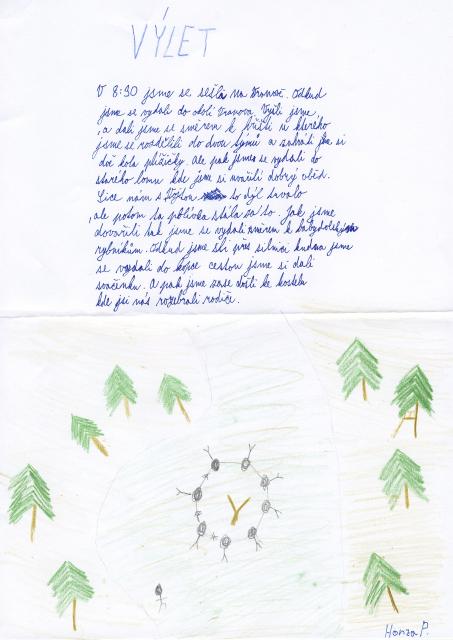 VÝLET
V 8:30 jsme se sešla na Tranově. Odkud
jsme se vydali do okolí Tranova Vyšli jsme,
a dali jsme se směrem k hřišti u kterého
jsme se rozdělili do dvou týmů a zahráli si
dvě kola plížičky. Ale pak jsme se vydali do
starého lomu kde jsme si uvařili dobrý oběd.
Sice nám to dýl trvalo
,ale potom ta polívka stála za to. Jak jsme
dovařili tak jsme se vydali směrem k
rybníkům. Odkud jsme šli přes silnici kudma jsme
se vydali do kopce cestou jsme si dali
svačinku. A pak jsme zase došli ke kostelu
kde jsi nás rozebrali rodiče.
Honza P.